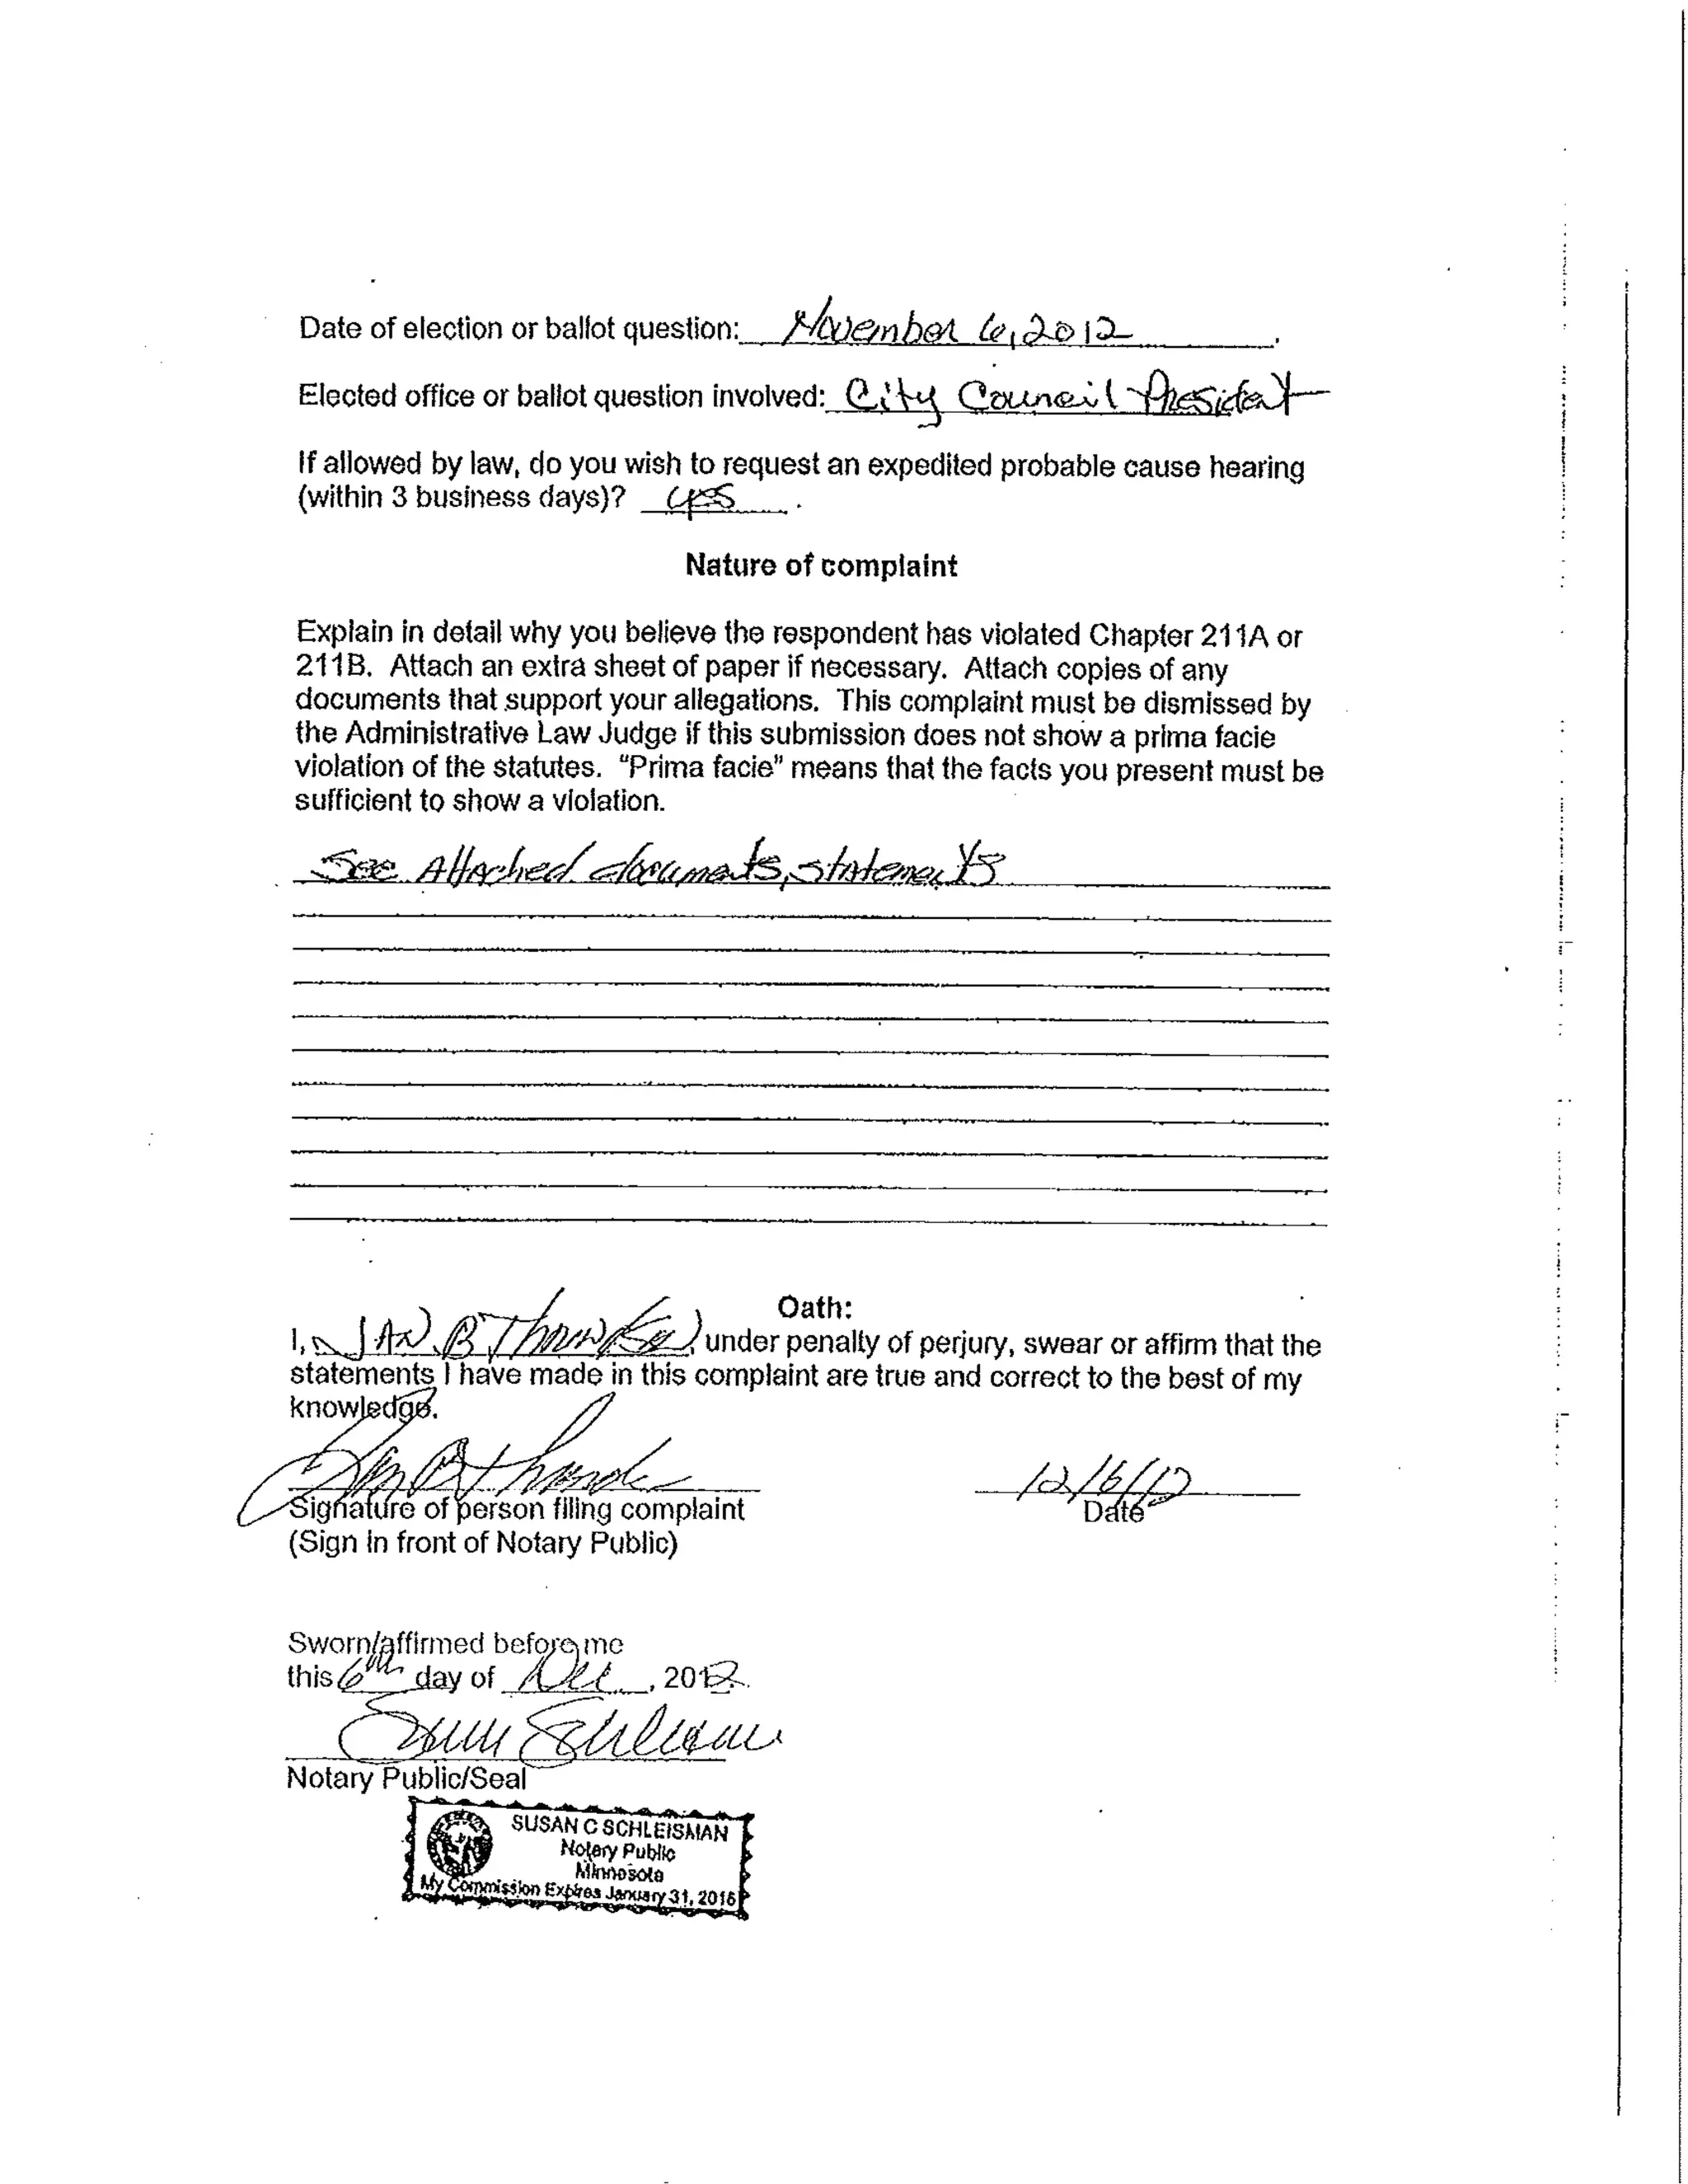 Date of election or ballot question: November 6, 2012.
Elected office or ballot question involved: City Council President
If allowed by law, do you wish to request an expedited probable cause hearing
(within 3 business days)? yes.
Nature of complaint
Explain in detail why you believe the respondent has violated Chapter 211A or
211B. Attach an extra sheet of paper if necessary. Attach copies of any
documents that support your allegations. This complaint must be dismissed by
the Administrative Law Judge if this submission does not show a prima facie
violation of the statutes. "Prima facie" means that the facts you present must be
sufficient to show a violation.
See Attached documents, statements
Oath:
I, JAN B, under penalty of perjury, swear or affirm that the
statements I have made in this complaint are true and correct to the best of my
knowledge.
12/6/12
Signature of person filing complaint Date
(Sign in front of Notary Public)
Sworn/affirmed before me
this 6th day of Dec, 2012.
Notary Public/Seal
SUSAN C SCHLEISMAN
Notary Public
Minnesota
My Commission Expires January 31, 2016